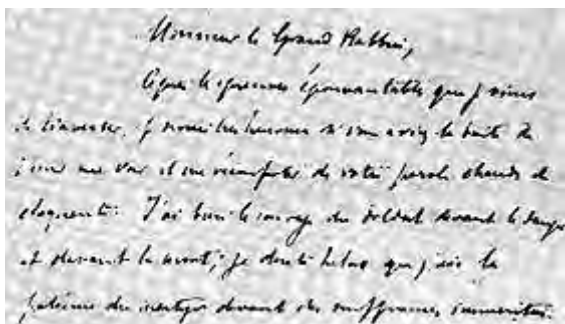 Monsieur le Grand Rabbin,
Après les épreuves épouvantables que je viens
de traverser, je serais très heureux si vous aviez la bonté de
venir me voir et me réconforter de votre parole chaude et
éloquente. J'ai bien le courage du soldat devant le danger
et devant la mort; je doute hélas que j'aie la
patience du martyr devant des souffrances imméritées.